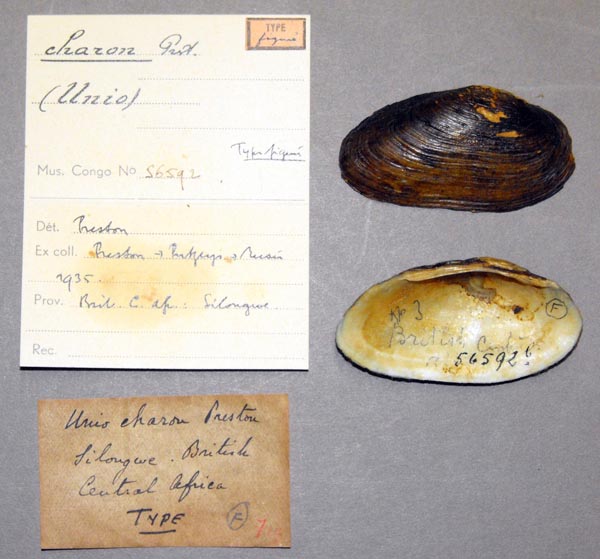 TYPE
figuré
charon Prst.
(Unio)
Type figuré
Mus. Congo No 56592
Dét. Preston
Ex coll. Preston → Putzeys → Musée
1935.
Prov. Brit. C. Af. : Silongwe.
Rec.
Unio charon Preston
Silongwe . British
Central Africa
TYPE
F
No 3
British Cent
56592
F